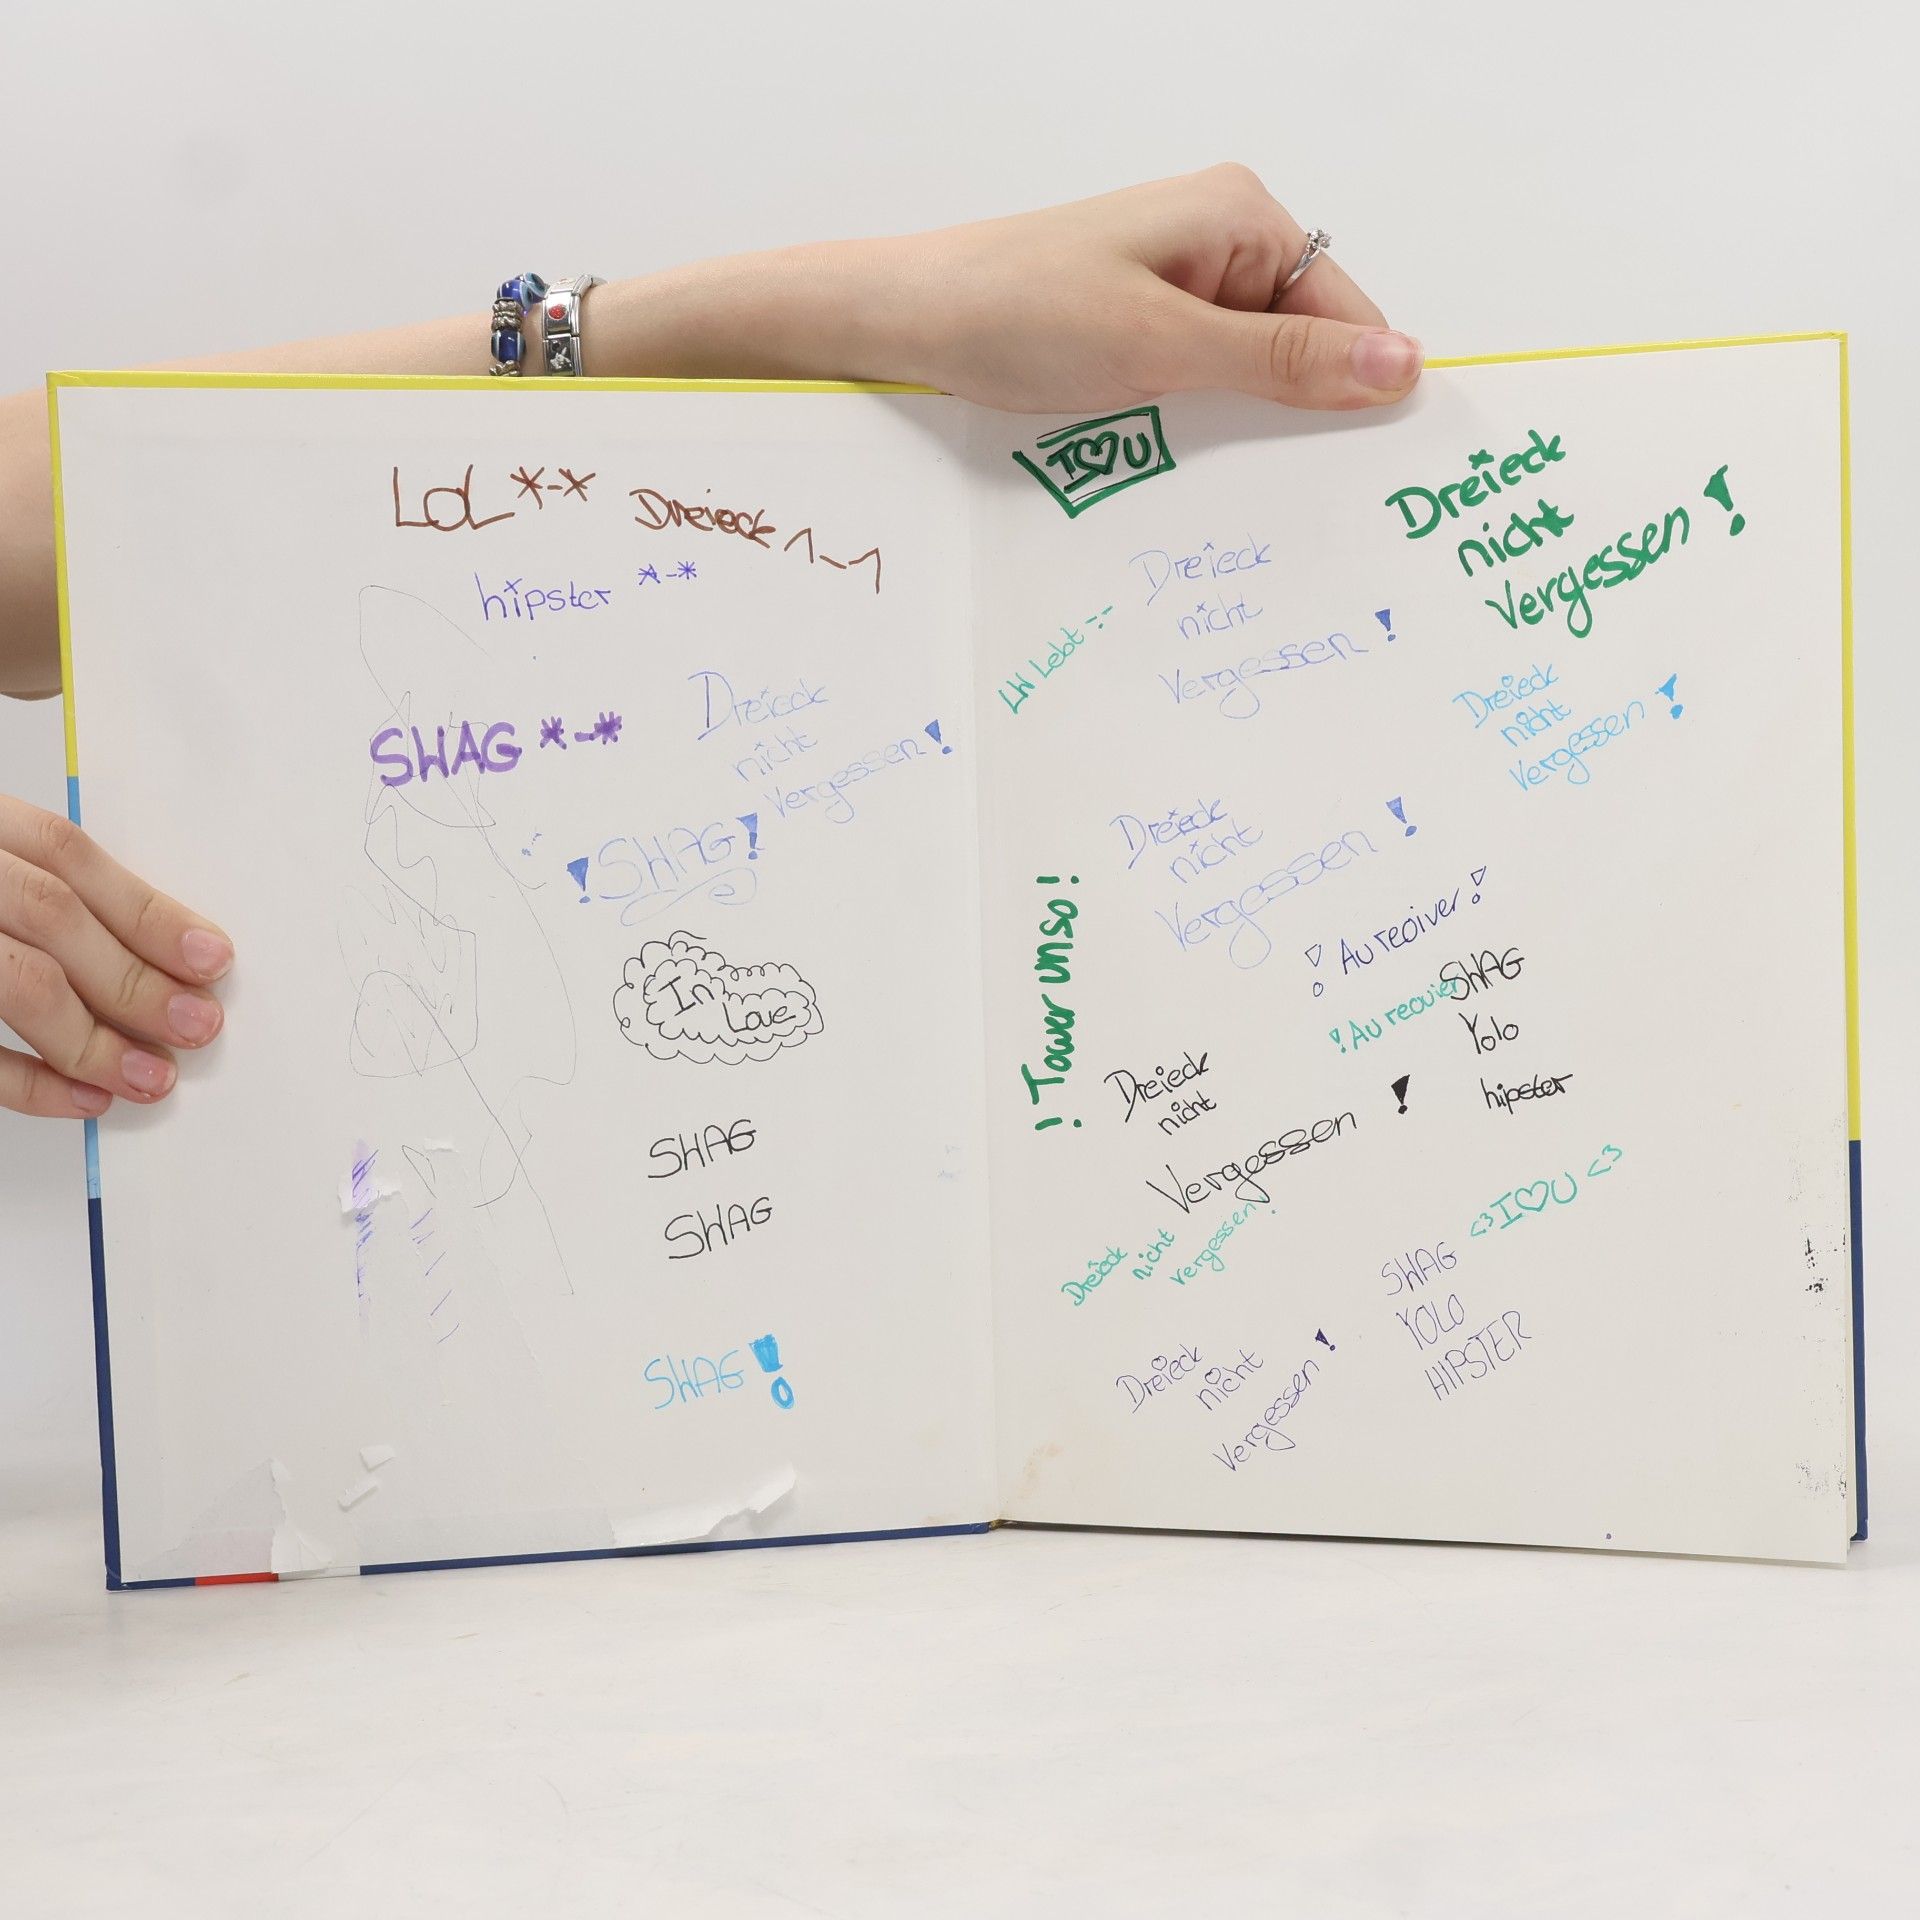 LOL *-*
Dreieck 1~1
hipster *-*
SWAG *-*
Dreieck
nicht
Vergessen!
!SWAG!
In
Love
SWAG
SWAG
SWAG!
I♡U
Dreieck
nicht
Vergessen!
Dreieck
nicht
Vergessen!
LW Lebt --
Dreieck
nicht
Vergessen!
Dreieck
nicht
Vergessen!
! Au reoiver!
! Tower unso!
SWAG
! Au reouier
Yolo
hipster
Dreieck
nicht
Vergessen!
Dreieck
nicht
vergessen!
<3 I♡U <3
SWAG
YOLO
HIPSTER
Dreieck
nicht
Vergessen!